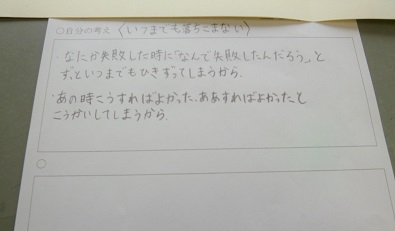 ○自分の考え〈いつまでも落ちこまない〉
・なにか失敗した時に「なんで失敗したんだろう。」と
ずっといつまでもひきずってしまうから。
・あの時こうすればよかった、ああすればよかったと
こうかいしてしまうから。
○